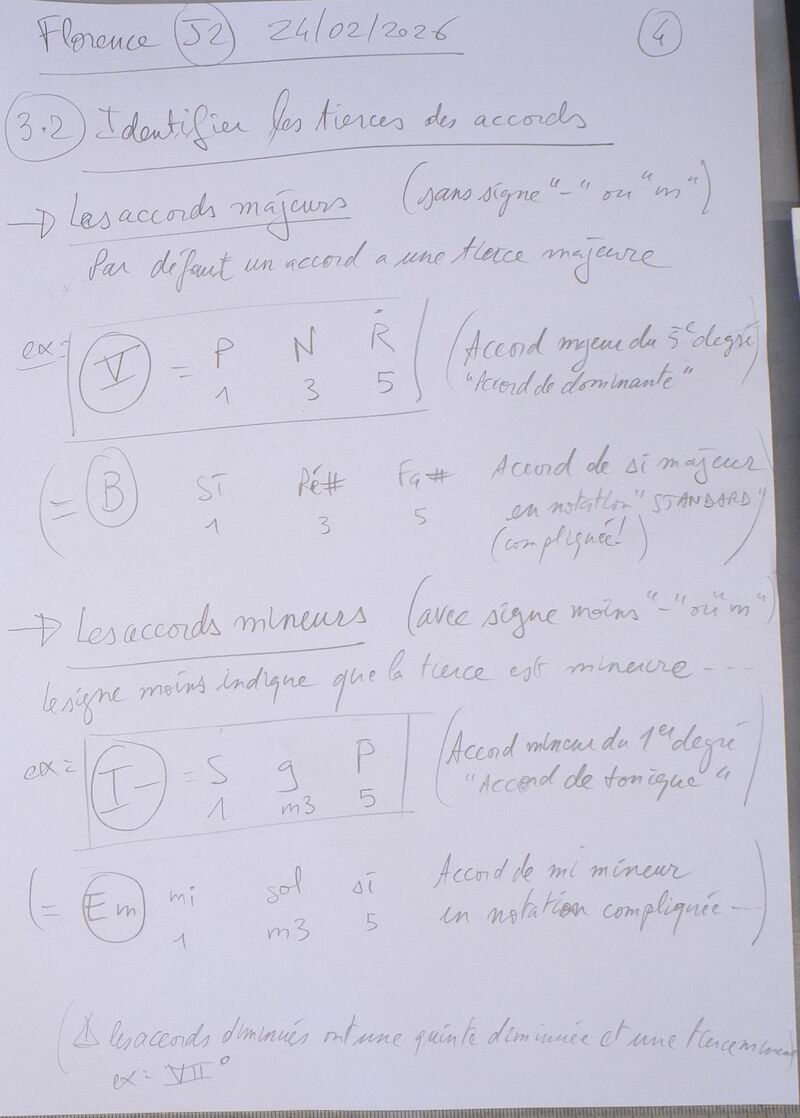 Florence J2 24/02/2026 4
3.2 Identifier les tierces des accords
→ Les accords majeurs (sans signe "-" ou "m")
Par défaut un accord a une tierce majeure
ex = V = P N Ṙ (Accord mjeur du 5e degré
1 3 5 "Accord de dominante"
(= B Si Ré# Fa# Accord de si majeur
1 3 5 en notation "STANDARD"
(compliquée!)
→ Les accords mineurs (avec signe moins "-" ou "m")
le signe moins indique que la tierce est mineure ---
ex = I- = S g P (Accord mineur du 1er degré
1 m3 5 "Accord de tonique")
(= Em mi sol si Accord de mi mineur
1 m3 5 en notation compliquée --)
(⚠ les accords diminués ont une quinte diminuée et une tierce mineure
ex = VII°